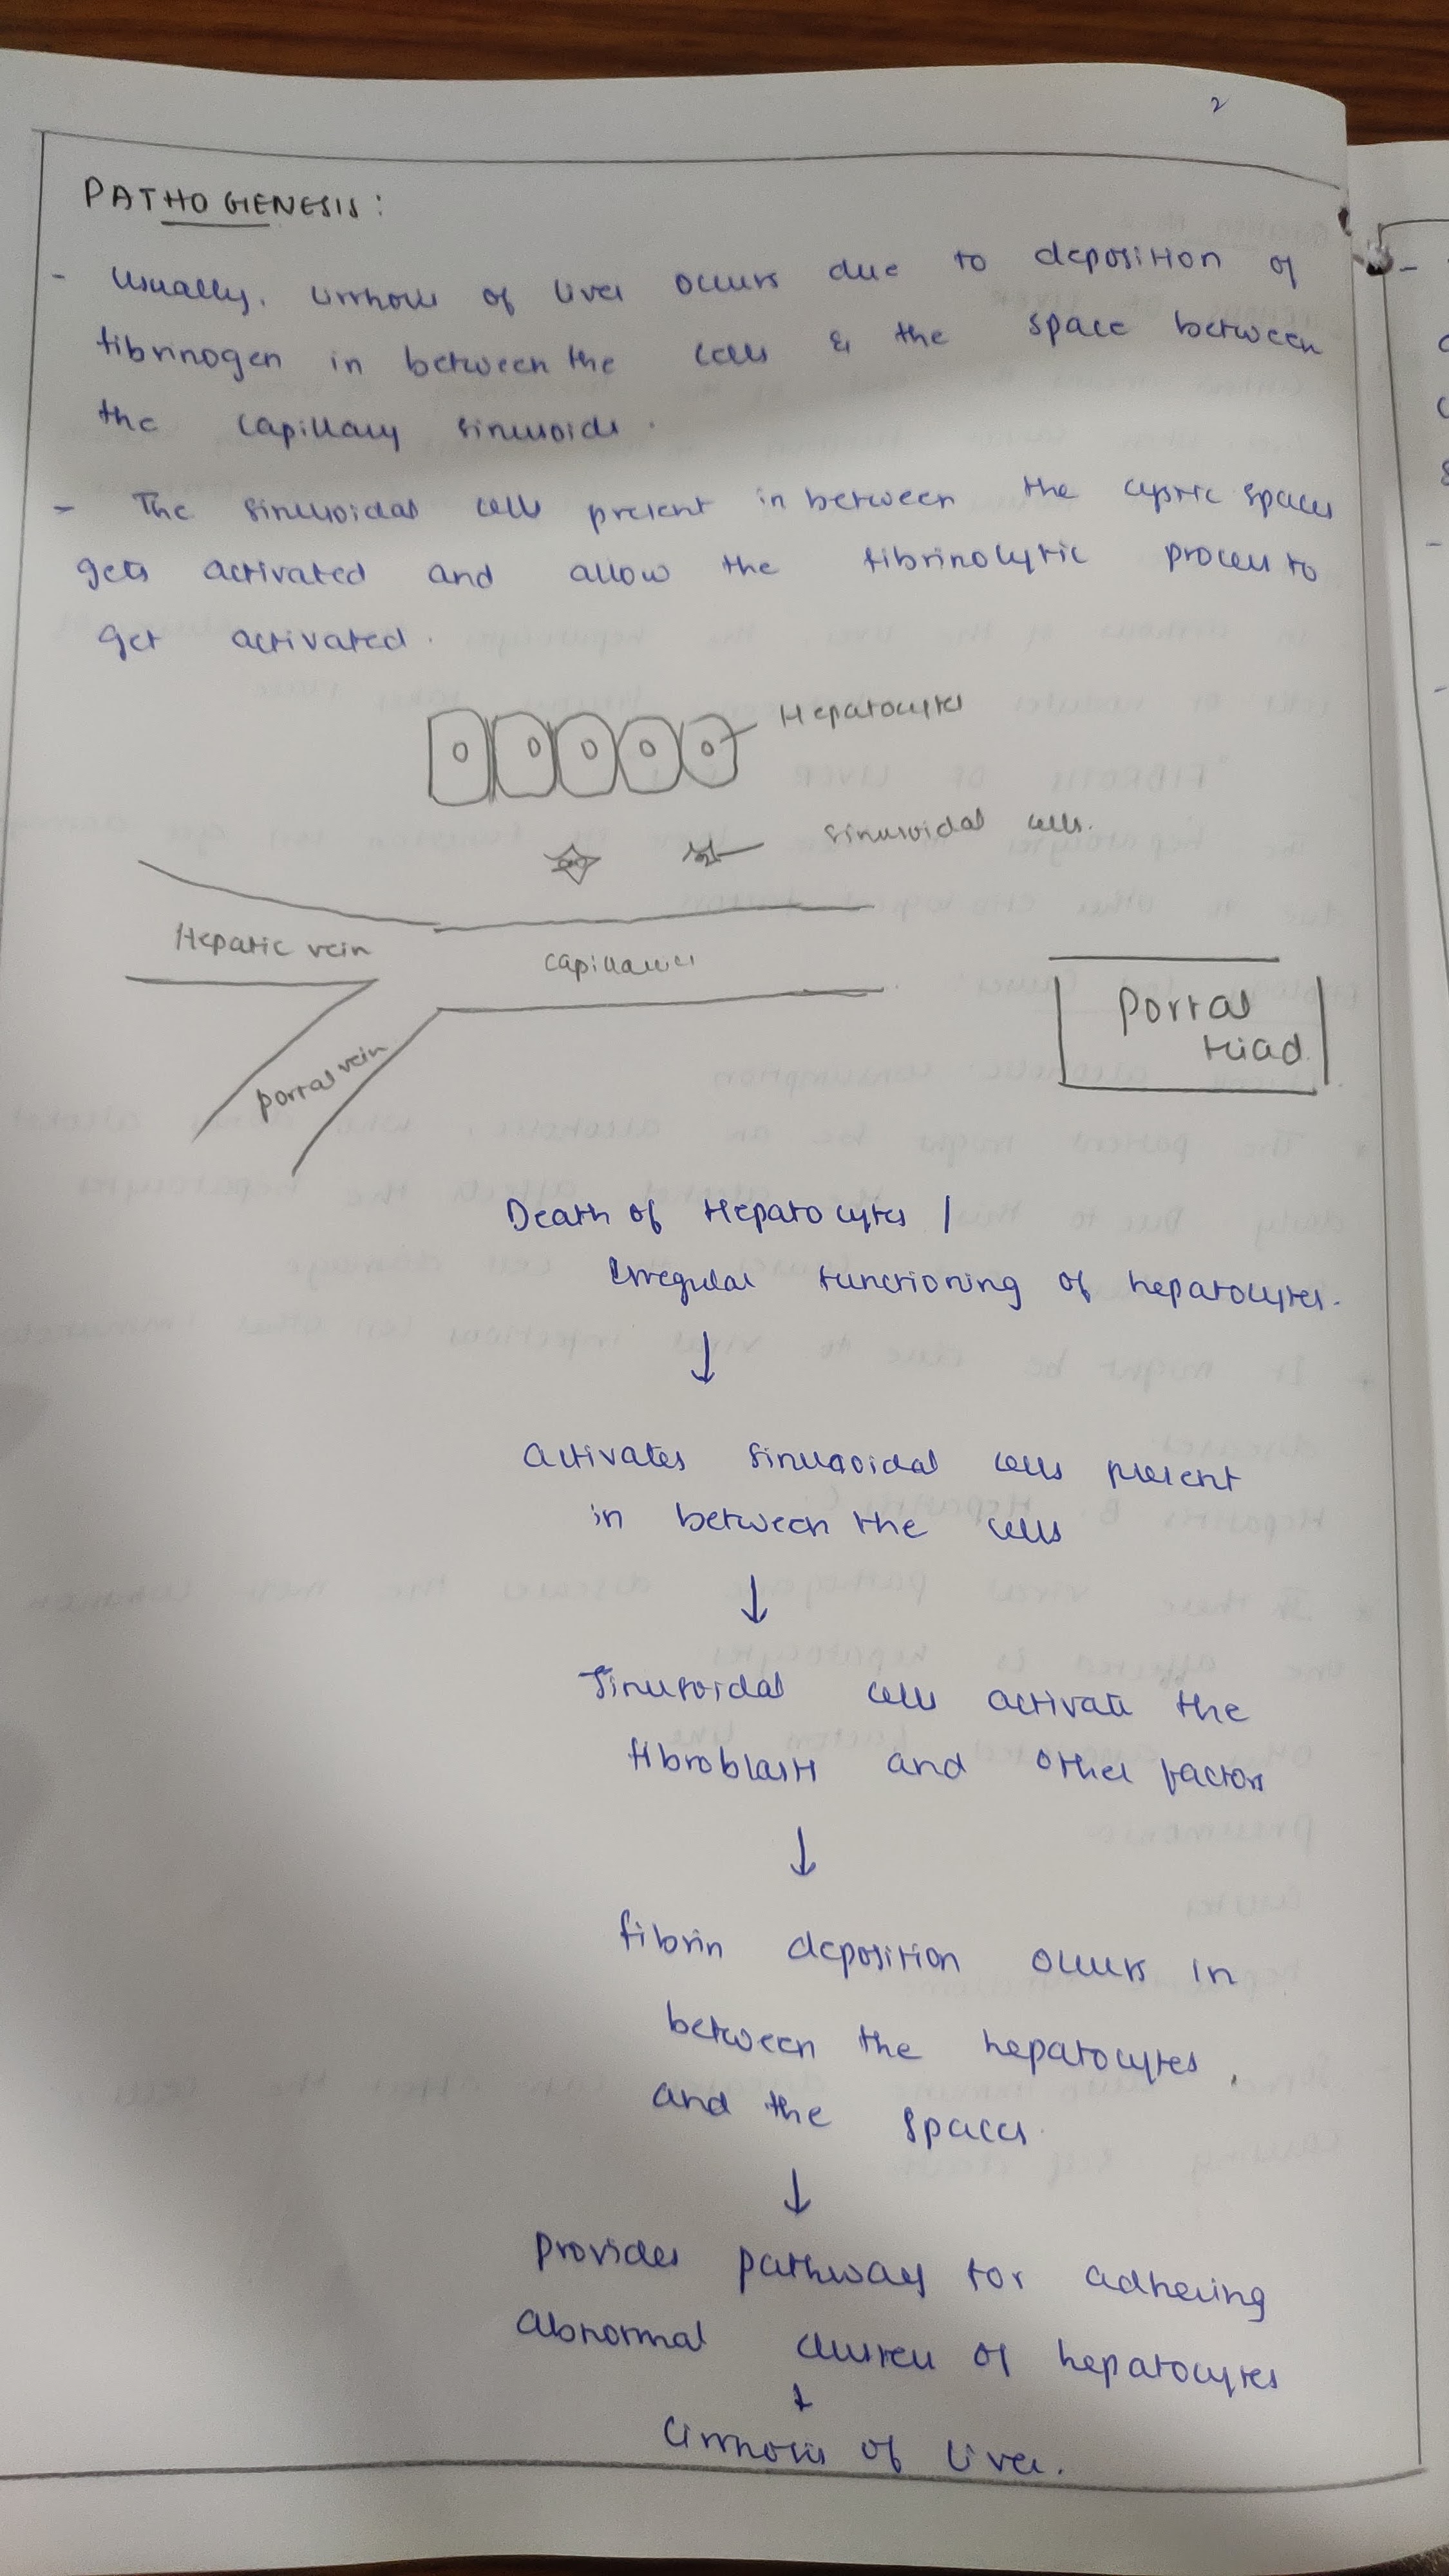 2
PATHOGENESIS:
- Usually, cirrhosis of liver occurs due to deposition of
fibrinogen in between the cells & the space between
the capillary sinusoids.
- The sinusoidal cells present in between the cystic spaces
gets activated and allow the fibrinolytic process to
get activated.
Hepatocytes
sinusoidal cells.
Hepatic vein
capillaries
portal vein
Portal
triad.
Death of Hepatocytes /
Irregular functioning of hepatocytes.
↓
activates sinusoidal cells present
in between the cells
↓
Sinusoidal cells activate the
fibroblasts and other factors
↓
fibrin deposition occurs in
between the hepatocytes,
and the spaces.
↓
Provides pathway for adhering
abnormal clusters of hepatocytes
↓
Cirrhosis of liver.